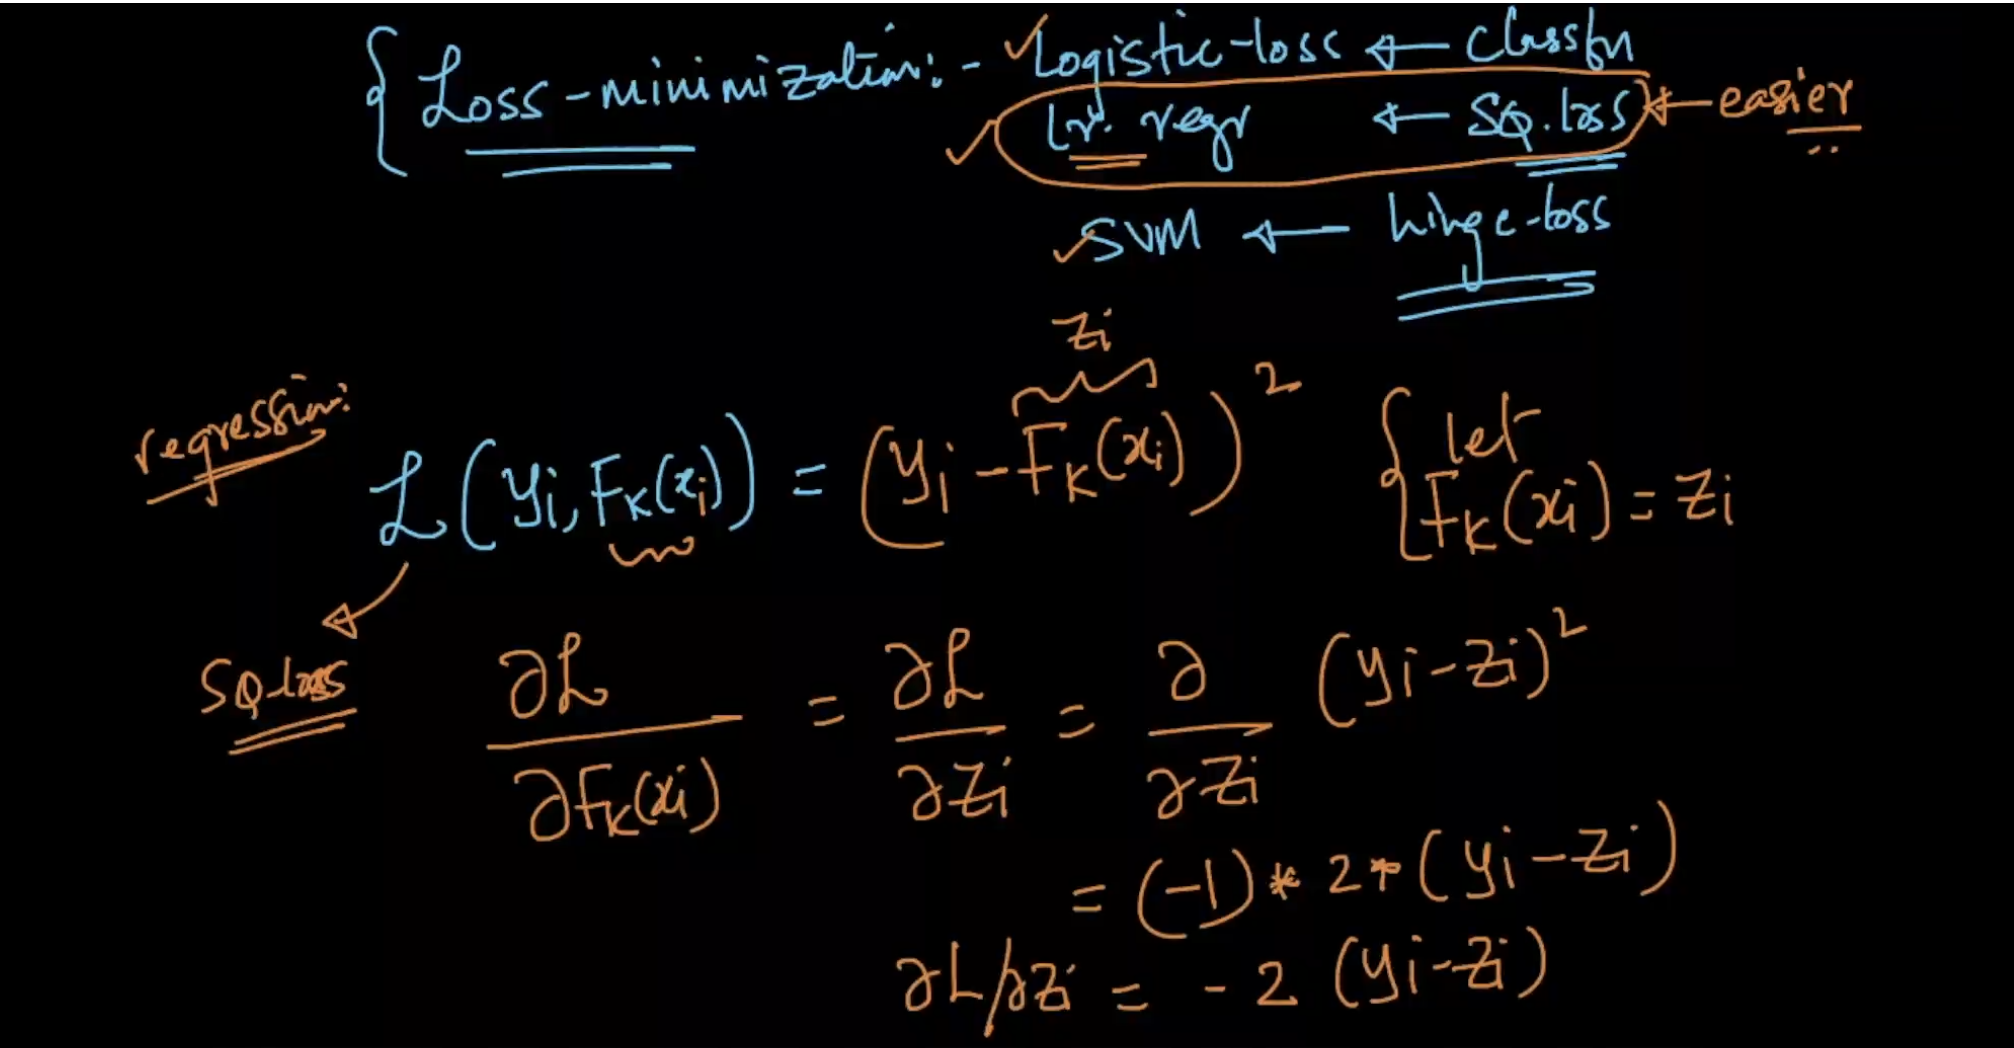 { Loss-minimization:- ✓Logistic-loss ← Classfn
✓ lr. regr ← SQ.loss ← easier
✓SVM ← hinge-loss
Zi
regression:
L(yi, Fk(xi)) = (yi - Fk(xi))² { let
Fk(xi) = Zi
SQ-loss
∂L/∂Fk(xi) = ∂L/∂Zi = ∂/∂Zi (yi - Zi)²
= (-1) * 2 * (yi - Zi)
∂L/∂Zi = -2 (yi - Zi)